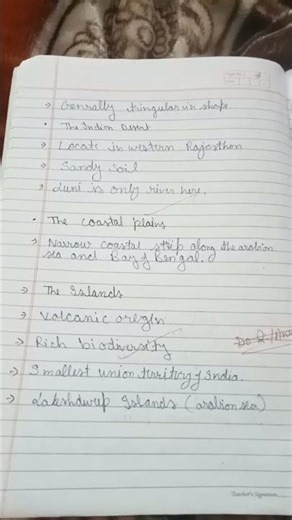 → Genrally tringular in shape
• The Indian Desert
→ Locate in western Rajasthan
→ Sandy Soil
→ Luni is only river here.
• The coastal plains
→ Narrow coastal strip along the arabian
sea and Bay of Bengal.
→ The Islands
→ Volcanic oregin
→ Rich biodiversity
→ Smallest union territicy of India.
→ Lakshdwep Islands (arabion sea)
Teacher's Signature